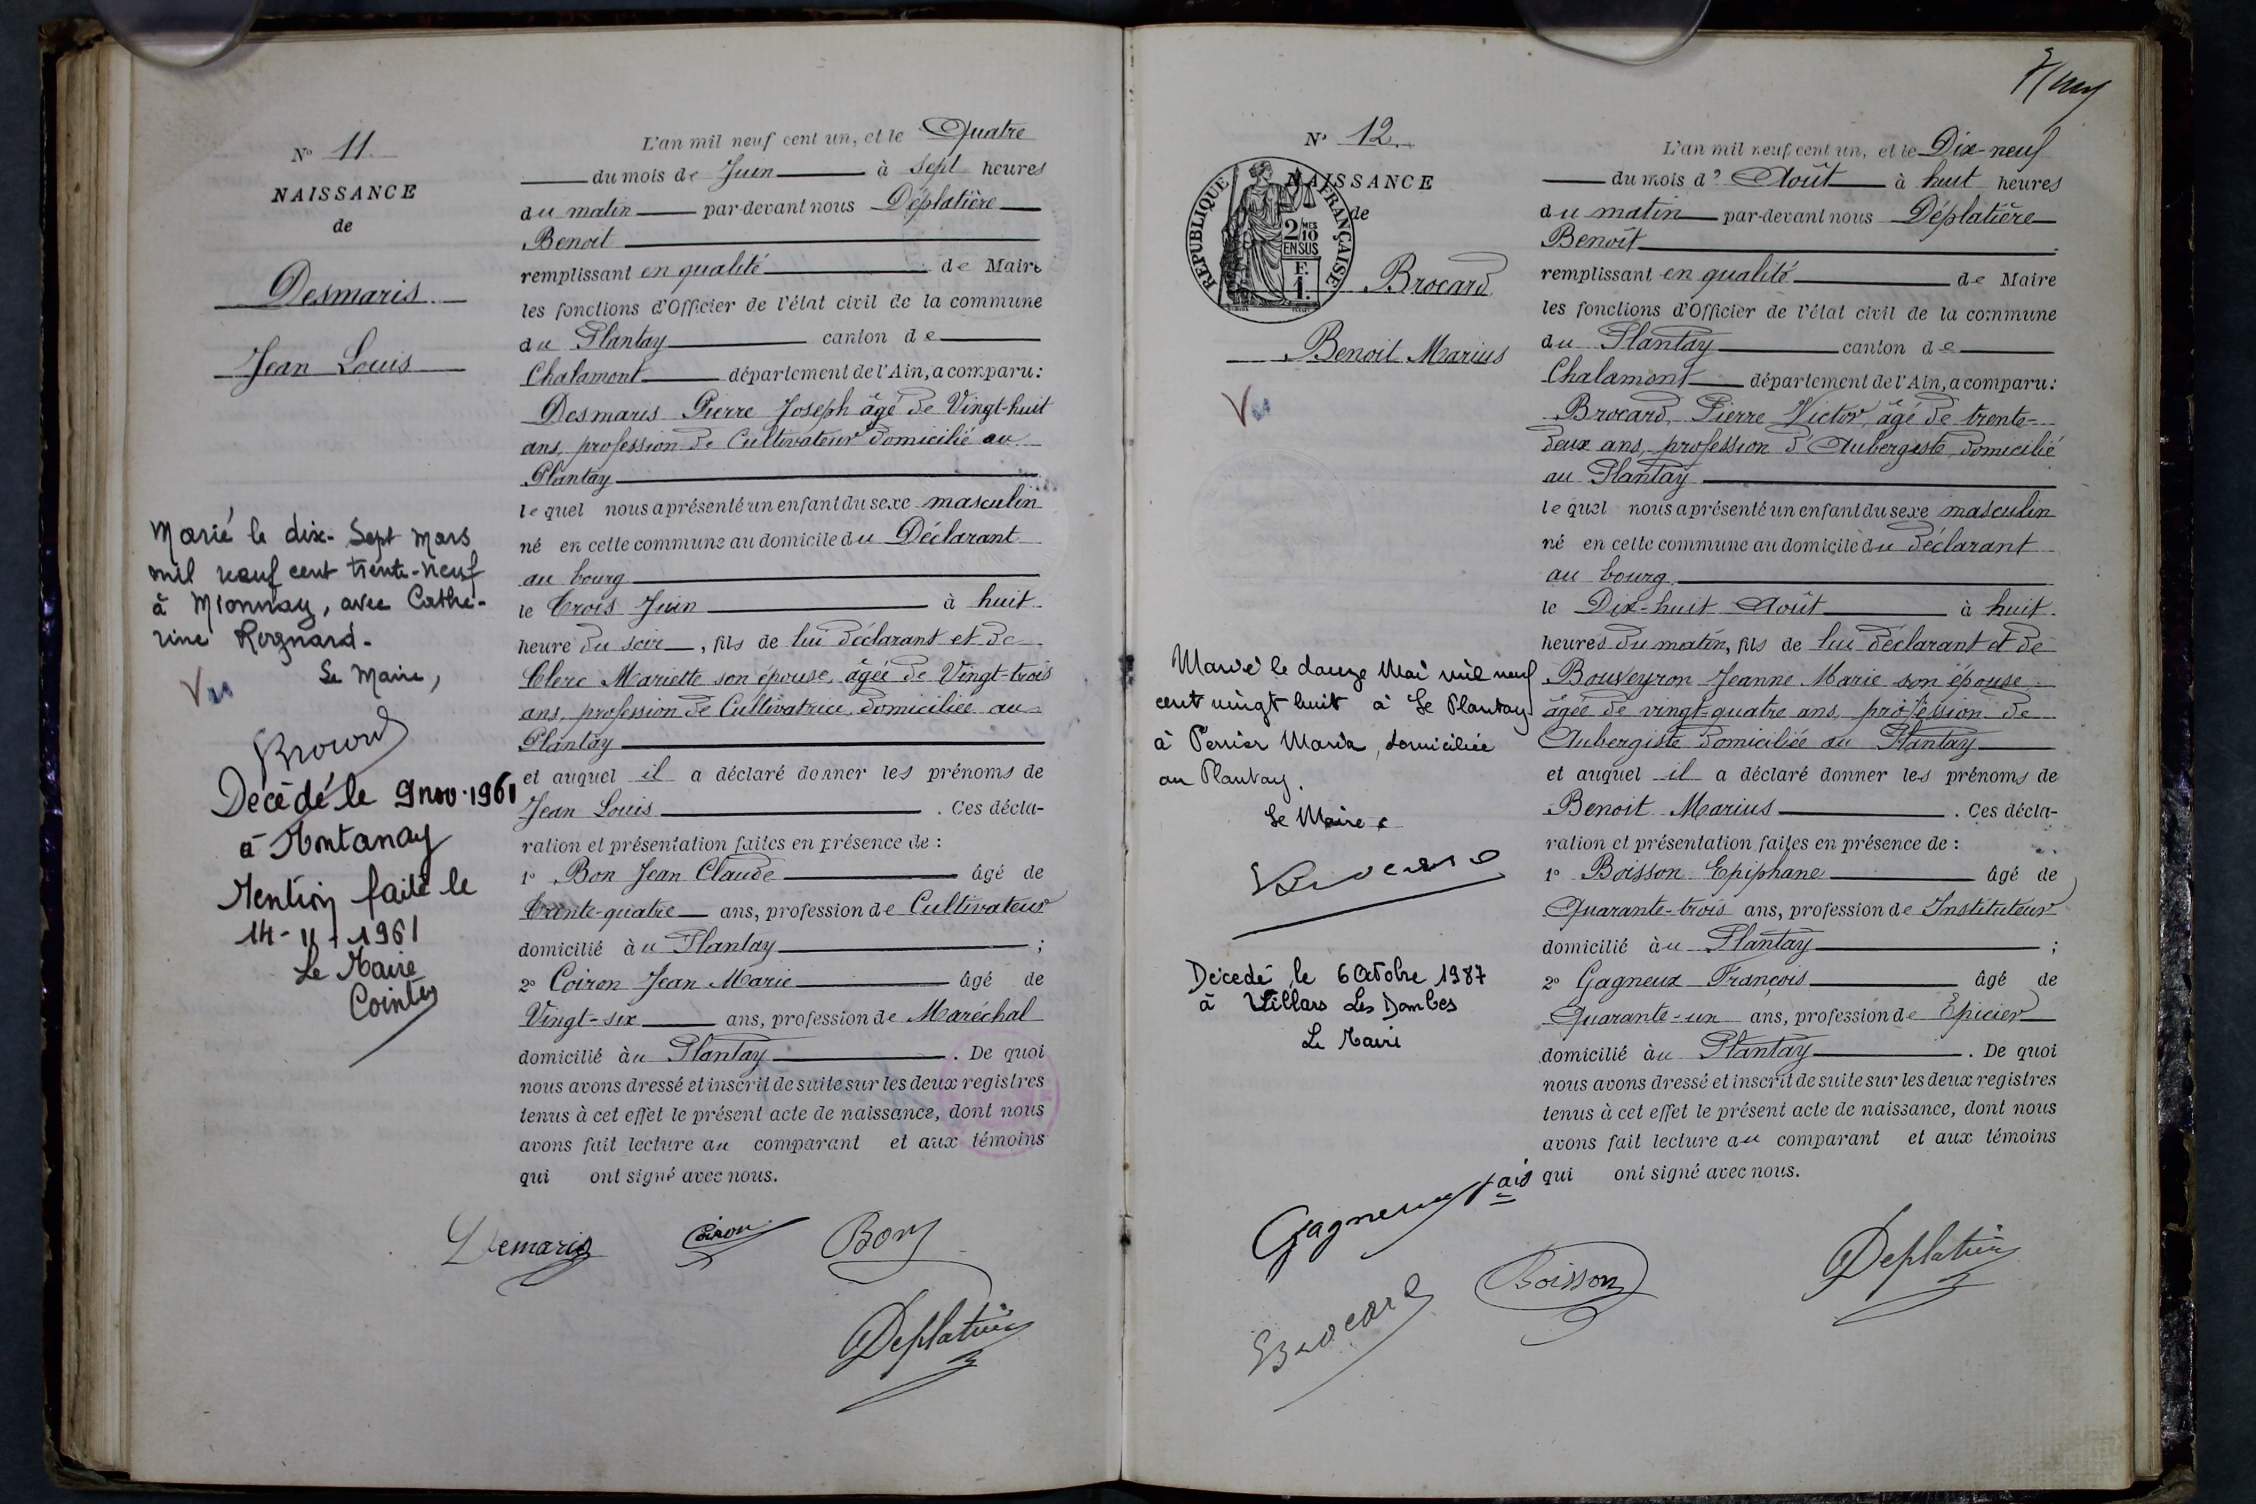 N° 11
NAISSANCE
de
Desmaris
Jean Louis
Marié le dix-sept mars
mil neuf cent trente-neuf
à Mionnay, avec Cathe-
rine Rognard.
Le Maire,
Vu
Brocard
Décédé le 9 nov. 1961
à Montanay
Mention faite le
14-11-1961
Le Maire
L'an mil neuf cent un, et le Quatre
du mois de Juin à sept heures
du matin par-devant nous Déplatière
Benoit
remplissant en qualité de Maire
les fonctions d'Officier de l'état civil de la commune
du Plantay canton de
Chalamont département de l'Ain, a comparu:
Desmaris Pierre Joseph âgé de Vingt-huit
ans, profession de Cultivateur domicilié au
Plantay
lequel nous a présenté un enfant du sexe masculin
né en cette commune au domicile du Déclarant
au bourg
le Trois Juin à huit
heure du soir, fils de lui déclarant et de
Clerc Mariette son épouse, âgée de Vingt-trois
ans, profession de Cultivatrice, domiciliée au
Plantay
et auquel il a déclaré donner les prénoms de
Jean Louis. Ces décla-
ration et présentation faites en présence de :
1° Bon Jean Claude âgé de
Trente-quatre ans, profession de Cultivateur
domicilié au Plantay ;
2° Coiron Jean Marie âgé de
Vingt-six ans, profession de Maréchal
domicilié au Plantay. De quoi
nous avons dressé et inscrit de suite sur les deux registres
tenus à cet effet le présent acte de naissance, dont nous
avons fait lecture au comparant et aux témoins
qui ont signé avec nous.
Demaris Coiron Bon
Deplatière
N° 12
NAISSANCE
de
RÉPUBLIQUE FRANÇAISE
2/10 MES
EN SUS
F.
1.
Brocard
Benoit Marius
Vu
Marié le douze Mai mil neuf
cent vingt huit à Le Plantay
à Perrier Maria, domiciliée
au Plantay.
Le Maire
Brocard
Décédé le 6 Octobre 1987
à Villars Les Dombes
Le Maire
L'an mil neuf cent un, et le Dix-neuf
du mois d' Août à huit heures
du matin par-devant nous Déplatière
Benoît
remplissant en qualité de Maire
les fonctions d'Officier de l'état civil de la commune
du Plantay canton de
Chalamont département de l'Ain, a comparu:
Brocard, Pierre Victor, âgé de trente-
deux ans, profession d'Aubergiste, domicilié
au Plantay
lequel nous a présenté un enfant du sexe masculin
né en cette commune au domicile du déclarant
au bourg
le Dix-huit Août à huit
heures du matin, fils de lui déclarant et de
Bouveyron Jeanne Marie son épouse
âgée de vingt-quatre ans, profession de
Aubergiste domiciliée au Plantay
et auquel il a déclaré donner les prénoms de
Benoit Marius. Ces décla-
ration et présentation faites en présence de :
1° Boisson Epiphane âgé de
Quarante-trois ans, profession de Instituteur
domicilié au Plantay ;
2° Gagneux François âgé de
Quarante-un ans, profession de Epicier
domicilié au Plantay. De quoi
nous avons dressé et inscrit de suite sur les deux registres
tenus à cet effet le présent acte de naissance, dont nous
avons fait lecture au comparant et aux témoins
qui ont signé avec nous.
Gagneux fais
Brocard Boisson Deplatière